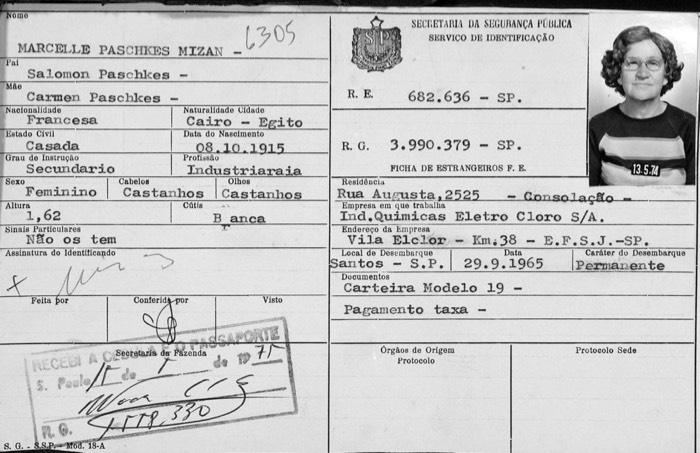 Nome
MARCELLE PASCHKES MIZAN - 6305
Pai
Salomon Paschkes -
Mãe
Carmen Paschkes -
Nacionalidade Naturalidade Cidade
Francesa Cairo - Egito
Estado Civil Data do Nascimento
Casada 08.10.1915
Grau de Instrução Profissão
Secundario Industriaraia
Sexo Cabelos Olhos
Feminino Castanhos Castanhos
Altura Cútis
1,62 Branca
Sinais Particulares
Não os tem
Assinatura do Identificando
Feita por Conferida por Visto
Secretaria da Fazenda
RECEBI A CEDULA E O PASSAPORTE
S. Paulo 15 de de 1975
R. G.
S. G. - S.S.P. - Mod. 18-A
SECRETARIA DA SEGURANÇA PÚBLICA
SERVIÇO DE IDENTIFICAÇÃO
SP
R. E. 682.636 - SP.
R. G. 3.990.379 - SP.
FICHA DE ESTRANGEIROS F. E.
13.5.74
Residência
Rua Augusta,2525 - Consolação -
Empresa em que trabalha
Ind.Quimicas Eletro Cloro S/A.
Endereço da Empresa
Vila Elclor - Km.38 - E.F.S.J.-SP.
Local de Desembarque Data Caráter do Desembarque
Santos - S.P. 29.9.1965 Permanente
Documentos
Carteira Modelo 19 -
Pagamento taxa -
Órgãos de Origem Protocolo Sede
Protocolo